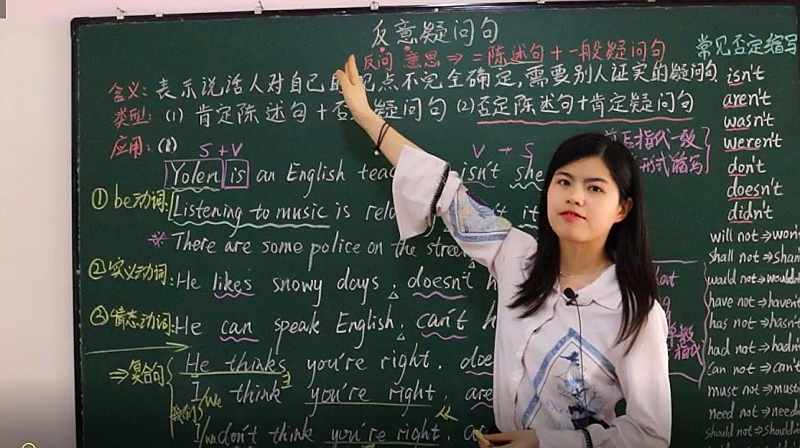 反意疑问句
反问 意思 ⇒ =陈述句+一般疑问句
常见否定缩写
含义: 表示说话人对自己 观点不完全确定,需要别人证实的疑问句.
类型: (1) 肯定陈述句+否 疑问句 (2) 否定陈述句+肯定疑问句
应用:
S + V
V + S
① be动词:
Yolen is an English tea isn't she
Listening to music is rel it
※ There are some police on the stree
② 实义动词: He likes snowy days, doesn't h
③ 情态动词: He can speak English, can't h
⇒ 复合句
He thinks you're right, doe
I/We think you're right, are
I/We don't think you're right, a
isn't
aren't
wasn't
weren't
don't
doesn't
didn't
will not ⇒ won
shall not ⇒ shan
would not ⇒ would
have not ⇒ haven
has not ⇒ hasn
had not ⇒ hadn
can not ⇒ can't
must not ⇒ must
need not ⇒ need
should not ⇒ should